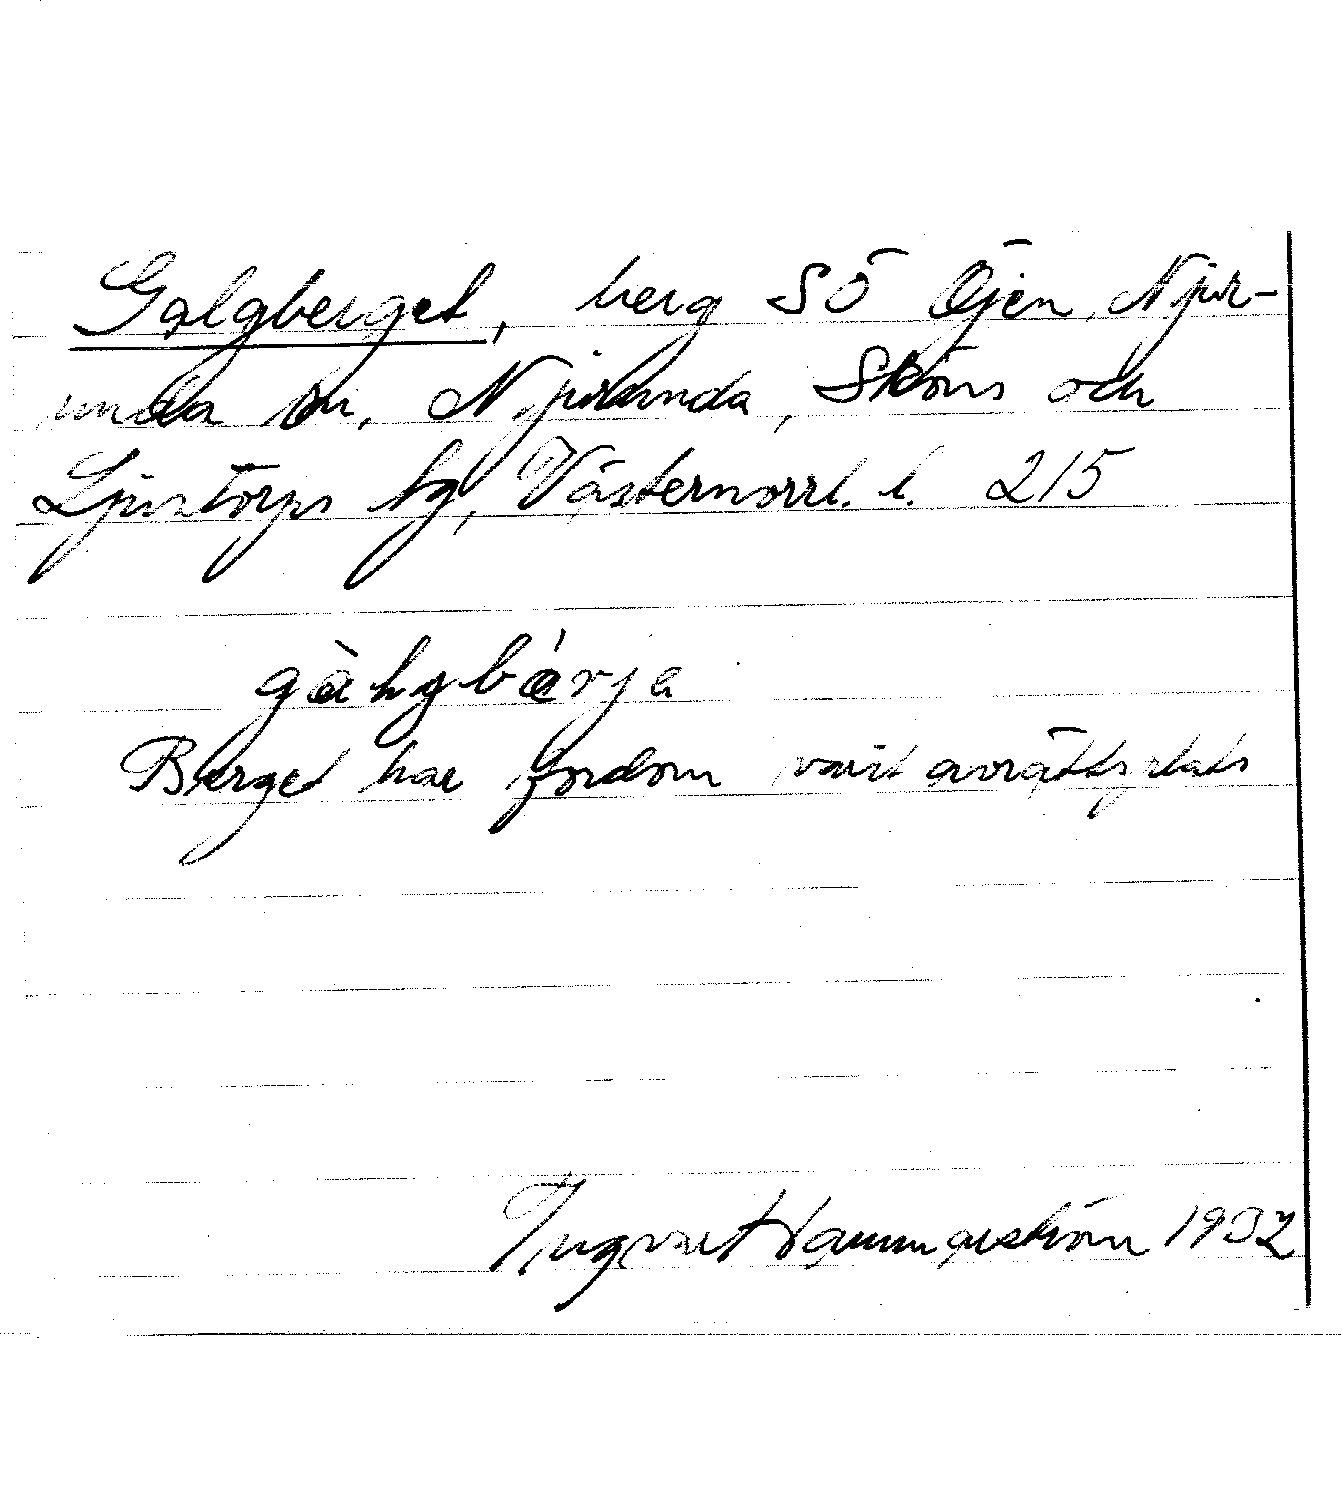 Galgberget, berg SÖ Öjen, Njur-
unda sn, Njurunda, Sköns och
Ljustorps tg, Västernorrl. l. 215
gàlgbárja
Berget har fordom varit avrättsplats
Ingvar Hammarström 1932